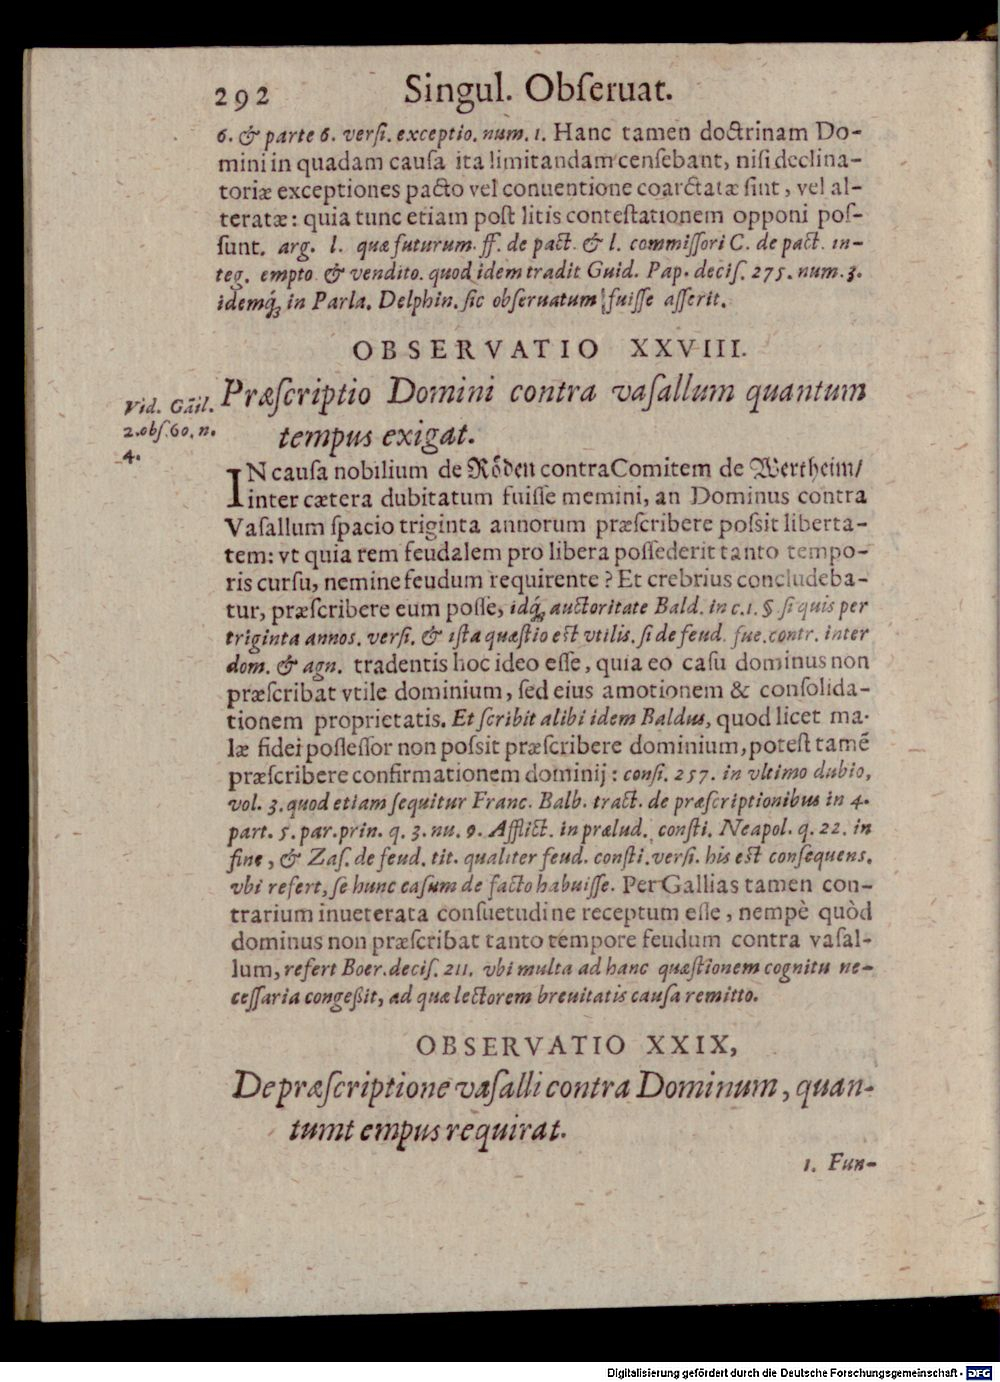 292 Singul. Obſeruat.
6. & parte 6. verſi. exceptio. num. 1. Hanc tamen doctrinam Do-
mini in quadam cauſa ita limitandam cenſebant, niſi declina-
toriæ exceptiones pacto vel conuentione coarctatæ ſint, vel al-
teratæ: quia tunc etiam poſt litis conteſtationem opponi poſ-
ſunt. arg. l. quæ futurum. ff. de pact. & l. commiſſori C. de pact. in-
teg. empto. & vendito. quod idem tradit Guid. Pap. deciſ. 275. num. 3.
idemq́; in Parla. Delphin. ſic obſeruatum fuiſſe aſſerit.
OBSERVATIO XXVIII.
Præſcriptio Domini contra vaſallum quantum
tempus exigat.
Vid. Gäil.
2. obſ. 60. n.
4.
IN cauſa nobilium de Röden contra Comitem de Wertheim/
inter cætera dubitatum fuiſſe memini, an Dominus contra
Vaſallum ſpacio triginta annorum præſcribere poſsit liberta-
tem: vt quia rem feudalem pro libera poſſederit tanto tempo-
ris curſu, nemine feudum requirente? Et crebrius concludeba-
tur, præſcribere eum poſſe, idq́; auctoritate Bald. in c. 1. §. ſi quis per
triginta annos. verſi. & iſta quæſtio eſt vtilis. ſi de feud. fue. contr. inter
dom. & agn. tradentis hoc ideo eſſe, quia eo caſu dominus non
præſcribat vtile dominium, ſed eius amotionem & conſolida-
tionem proprietatis. Et ſcribit alibi idem Baldus, quod licet ma-
læ fidei poſſeſſor non poſsit præſcribere dominium, poteſt tamē
præſcribere confirmationem dominij: conſi. 257. in vltimo dubio,
vol. 3. quod etiam ſequitur Franc. Balb. tract. de præſcriptionibus in 4.
part. 5. par. prin. q. 3. nu. 9. Afflict. in prælud. conſti. Neapol. q. 22. in
fine, & Zaſ. de feud. tit. qualiter feud. conſti. verſi. his eſt conſequens.
vbi refert, ſe hunc caſum de facto habuiſſe. Per Gallias tamen con-
trarium inueterata conſuetudine receptum eſſe, nempè quòd
dominus non præſcribat tanto tempore feudum contra vaſal-
lum, refert Boer. deciſ. 211. vbi multa ad hanc quæſtionem cognitu ne-
ceſſaria congeßit, ad quæ lectorem breuitatis cauſa remitto.
OBSERVATIO XXIX,
De præſcriptione vaſalli contra Dominum, quan-
tumt empus requirat.
1. Fun-
Digitalisierung gefördert durch die Deutsche Forschungsgemeinschaft - DFG